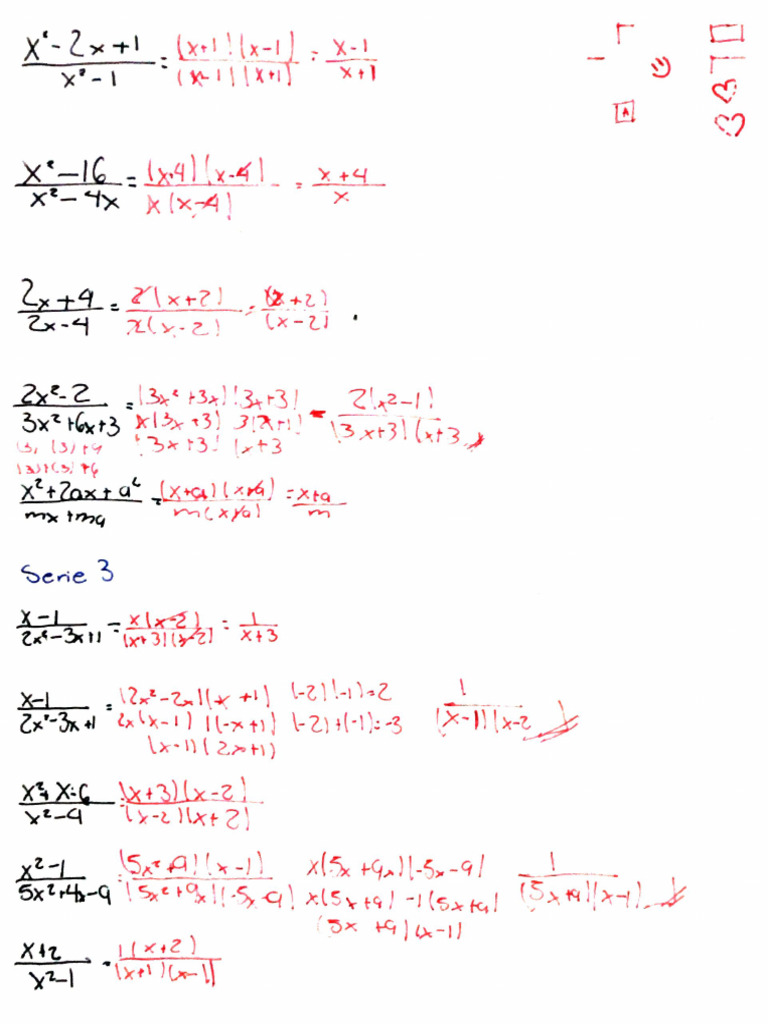 x² - 2x + 1 / x² - 1 = (x+1)(x-1) / (x-1)(x+1) = x-1 / x+1
x² - 16 / x² - 4x = (x+4)(x-4) / x(x-4) = x+4 / x
2x+4 / 2x-4 = 2(x+2) / 2(x-2) = (x+2) / (x-2)
2x² - 2 / 3x² + 6x + 3 = (3x² + 3x)(3x+3) = 2(x²-1) / (3x+3)(x+3
x(3x+3) 3(x+1)
(3x+3) (x+3
(3) (3) +9
(3)+(3) +6
x² + 2ax + a² / mx + ma = (x+a)(x+a) / m(x+a) = x+a / m
Serie 3
x-1 / 2x² - 3x+1 = x(x-2) / (x+3)(x-2) = 1 / x+3
x-1 / 2x² - 3x+1 = (2x² - 2x)(-x+1) (-2)(-1)=2 1 / (x-1)(x-2
2x(x-1) 1(-x+1) (-2)+(-1)=-3
(x-1)(2x+1)
x² + x - 6 / x² - 4 = (x+3)(x-2) / (x-2)(x+2)
x² - 1 / 5x² + 4x - 9 = (5x²+9)(x-1) / (5x²+9x)(-5x-9) x(5x+9x)(-5x-9) 1 / (5x+9)(x-1)
x(5x+9) -1(5x+9)
(5x+9)(x-1)
x+2 / x² - 1 = 1(x+2) / (x+1)(x-1)